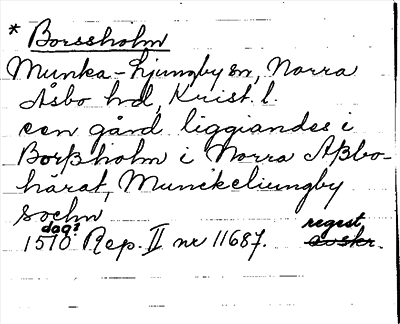 * Borssholm
Munka-Ljungby sn, Norra
Åsbo hd, Krist. l.
een gård liggiandes i
Borßholm i Norra Aßbo-
härat, Munckeliungby
sochn
dag? regest
1510 Rep. II nr 11687. avskr.